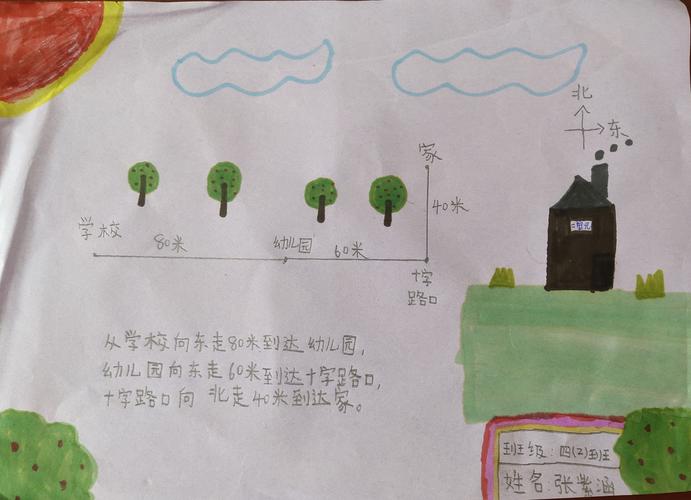 北
东
家
40米
学校
80米
幼儿园
60米
十字
路口
二单元
从学校向东走80米到达幼儿园,
幼儿园向东走60米到达十字路口,
十字路口向北走40米到达家。
班级:四(2)班
姓名:张紫涵